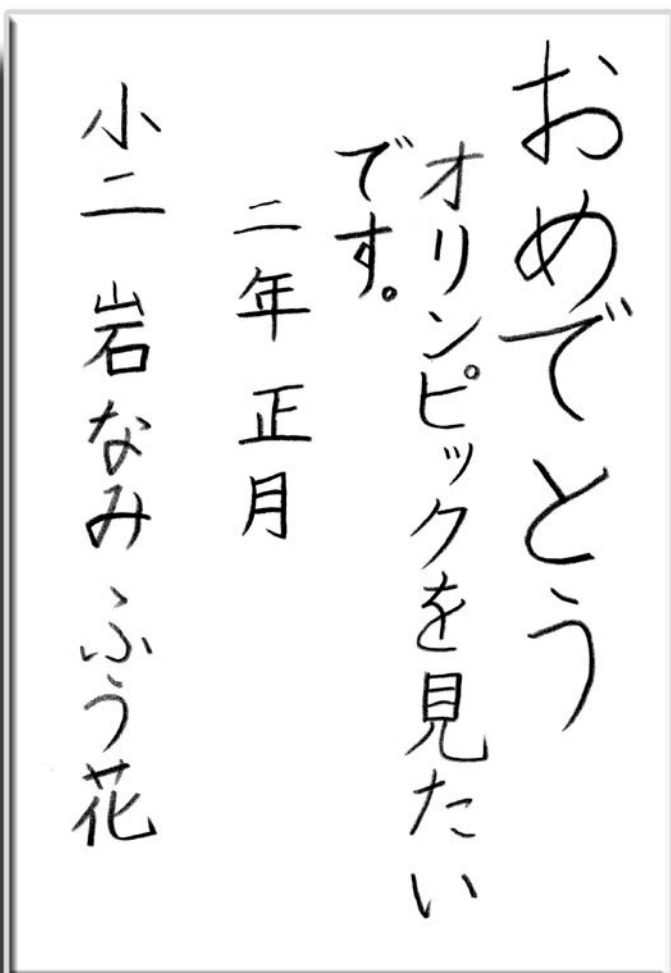 おめでとう
オリンピックを見たい
です。
二年正月
小二 岩なみふう花